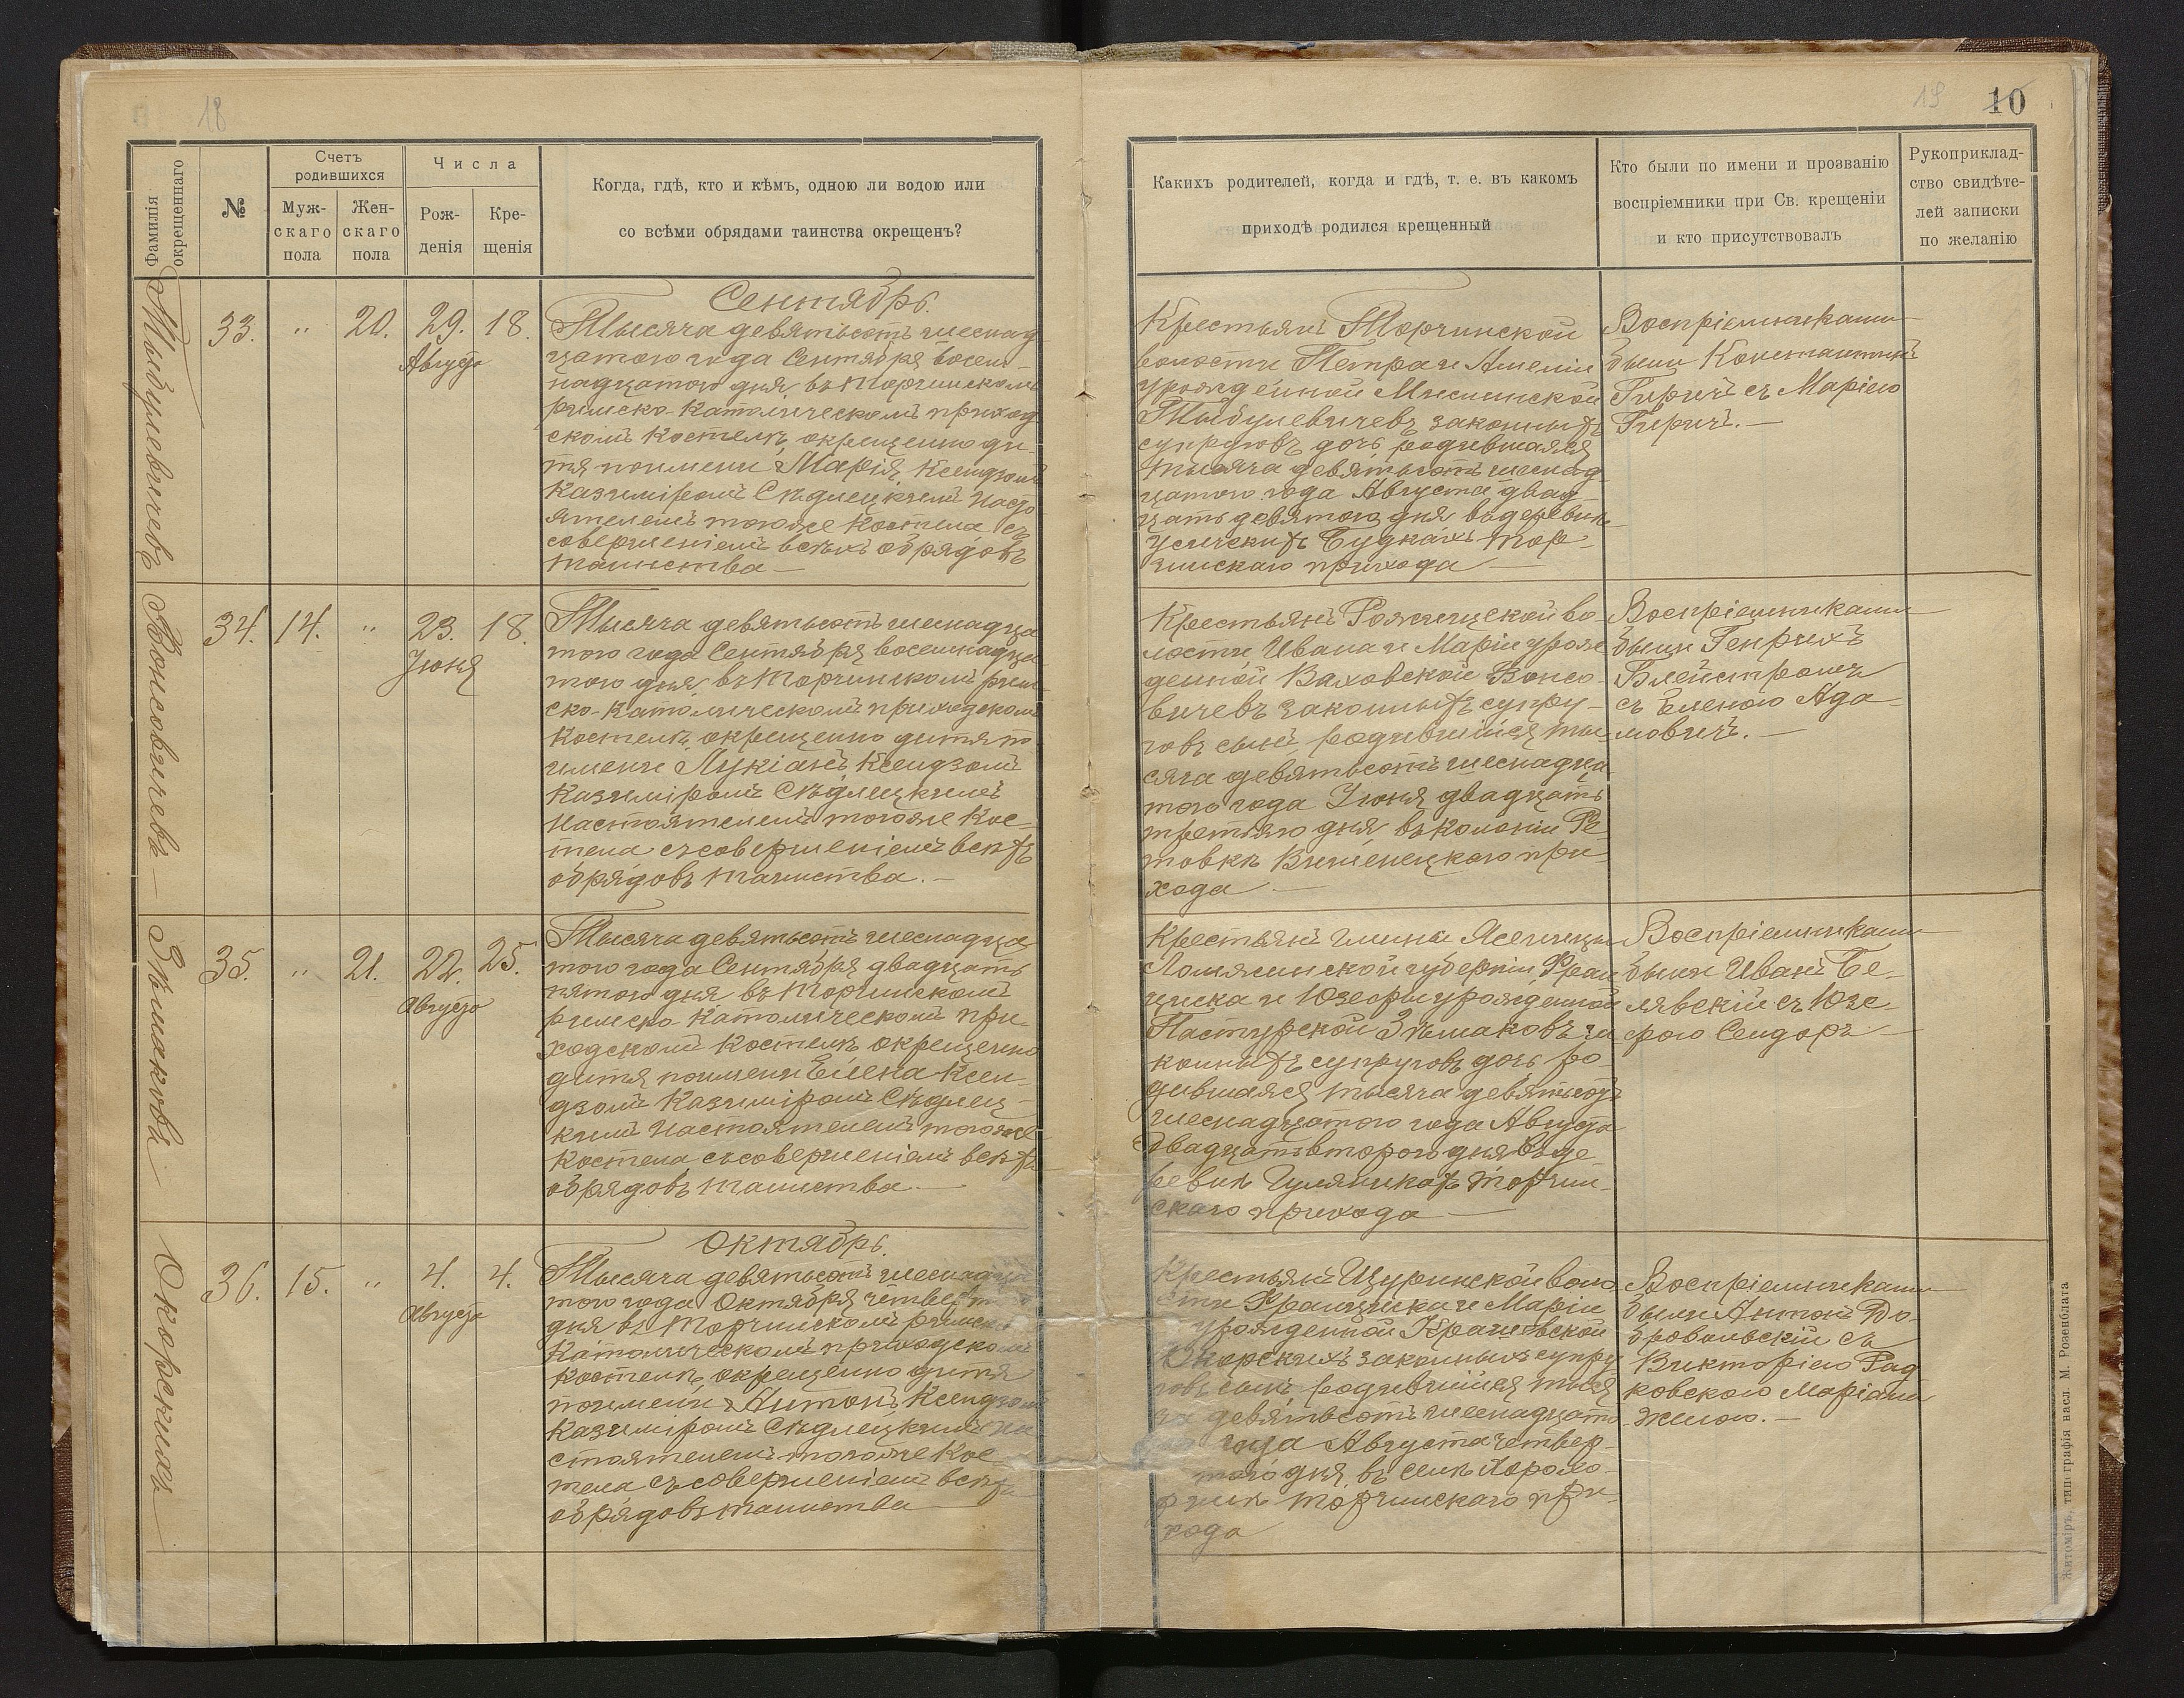 18
Фамилія окрещеннаго
№
Счетъ родившихся
Мужскаго пола
Женскаго пола
Числа
Рожденія
Крещенія
Когда, гдѣ, кто и кѣмъ, одною ли водою или
со всѣми обрядами таинства окрещенъ?
Тыбулевичевъ
33.
"
20.
29.
Августа
18.
Сентябрь.
Тысяча девятьсотъ шеснад-
цатого года Сентября восем-
надцатого дня въ Торчинскомъ
римско-католическомъ приход-
скомъ костелѣ окрещенно ди-
тя по имени Марія, Ксендзомъ
Казиміромъ Сѣдлецкимъ Насто-
ятелемъ тогоже костела съ
совершеніемъ всѣхъ обрядовъ
таинства —
Вонсовичевъ —
34.
14.
"
23.
Іюня
18.
Тысяча девятьсотъ шеснадца-
того года Сентября восемнадца-
того дня въ Торчинскомъ рим-
ско-католическомъ приходскомъ
костелѣ окрещенно дитя по
имени Лукіанъ Ксендзомъ
Казиміромъ Сѣдлецкимъ
Настоятелемъ тогоже кос-
тела съ совершеніемъ всѣхъ
обрядовъ таинства. —
Зѣмаковъ —
35.
"
21.
22.
Августа
25.
Тысяча девятьсотъ шеснадца-
того года Сентября двадцать
пятого дня въ Торчинскомъ
римско-католическомъ при-
ходскомъ костелѣ окрещенно
дитя по имени Елена Ксен-
дзомъ Казиміромъ Сѣдлец-
кимъ Настоятелемъ тогоже
костела съ совершеніемъ всѣхъ
обрядовъ таинства —
Окорскихъ —
36.
15.
"
4.
Августа
4.
Октябрь.
Тысяча девятьсотъ шеснадца-
того года Октября четверт
дня въ Торчинскомъ римско-
католическомъ приходскомъ
костелѣ окрещенно дитя
по имени Антонъ Ксендзомъ
Казиміромъ Сѣдлецкимъ На-
стоятелемъ тогоже кос-
тела съ совершеніемъ всѣхъ
обрядовъ таинства —
19 10
Какихъ родителей, когда и гдѣ, т. е. въ какомъ
приходѣ родился крещенный
Кто были по имени и прозванію
воспріемники при Св. крещеніи
и кто присутствовалъ
Рукоприклад-
ство свидѣте-
лей записки
по желанію
Крестьянъ Торчинской
волости Петра и Амеліи
урожденной Мислинской
Тыбулевичевъ законныхъ
супруговъ дочь, родившаяся
тысяча девятьсотъ шеснад-
цатого года Августа двад-
цать девятого дня въ деревнѣ
Усичскихъ Будкахъ Тор-
чинскаго прихода —
Воспріемниками
были Константинъ
Гиричъ съ Маріею
Гиричъ. —
Крестьянъ Рожищской во-
лости Ивана и Маріи урож-
деннойВаховской Вонсо-
вичевъ законныхъ супру-
говъ сынъ, родившійся ты-
сяча девятьсотъ шеснадца-
того года Іюня двадцать
третьяго дня въ колоніи Ре-
товкѣ Вишенецкого при-
хода —
Воспріемниками
были Генрихъ
Блейстромъ
съ Еленою Ада-
мовичъ. —
Крестьянъ гмины Ясеницы
Ломжинской губерніи Фран-
циска и Юзефы урожденной
Пастурской Зѣмаковъ за-
конныхъ супруговъ дочь ро-
дившаяся тысяча девятьсотъ
шеснадцатого года Августа
двадцать второго дня въ де-
ревнѣ Гуляникахъ Торчин-
скаго прихода —
Воспріемниками
были Иванъ Бе-
лявскій съ Юзе-
фою Сендоръ —
Крестьянъ Щуринской воло-
сти Франциска и Маріи
урожденной Крачевской
Окорскихъ законныхъ супру-
говъ сынъ, родившійся тыся-
ча девятьсотъ шеснадцато-
го года Августа четвер-
того дня въ селѣ Хорохо-
ринѣ Торчинскаго при-
хода
Воспріемниками
были Антонъ До-
бровольскій съ
Викторіею Рад-
ковскою Маріана
женою. —
Житоміръ, типографія насл. М. Розенблата